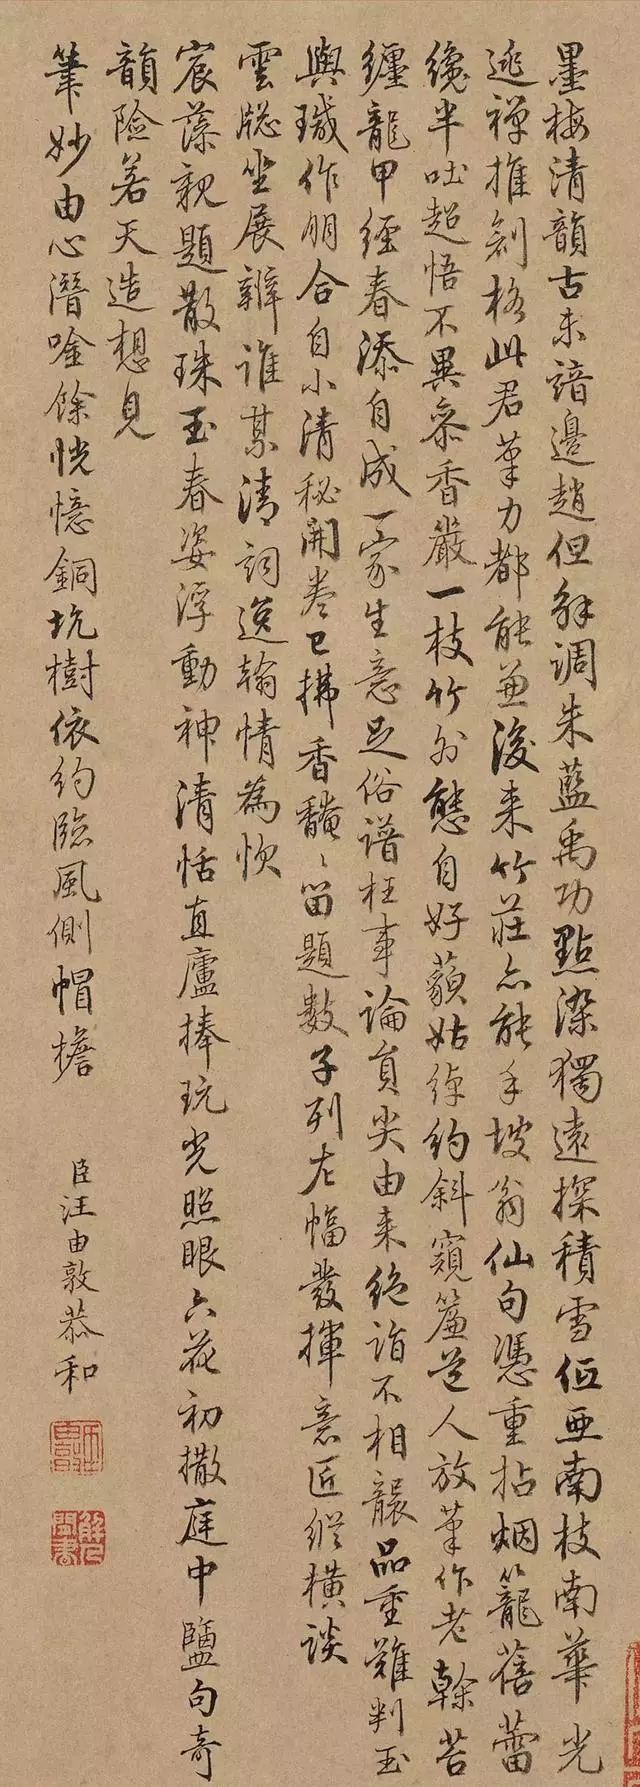 墨梅清韻古未諳邊趙但解調朱藍禹功點染獨遠探積雪低亞南枝南華光
逃禪推創格此君筆力都能兼後来竹莊亦能手坡翁仙句憑重拈烟籠舊蕾
纔半吐超悟不異參香嚴一枝竹外態自好藐姑綽約斜窺簾道人放筆作老榦苔
纏龍甲經春添自成一家生意足俗譜枉事論員尖由来絶詣不相襲品重難判玉
與瑊作朋合自小清秘開卷已拂香馣〻留題數子列左幅發揮意匠縱橫談
雲牕坐展辨誰某清詞逸翰情為忺
宸藻親題散珠玉春姿浮動神清恬直廬捧玩光照眼六花初撒庭中鹽句奇
韻險若天造想見
筆妙由心潛唫餘恍憶銅坑樹依約臨風側帽檐
臣汪由敦恭和